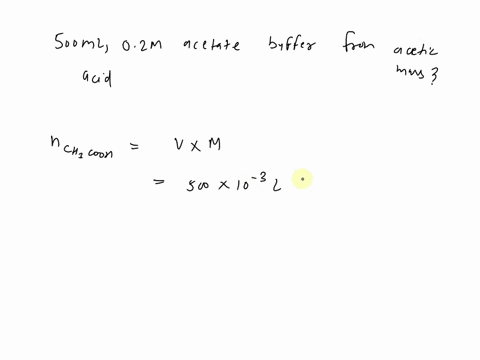 500mL, 0.2M acetate buffer from acetic
acid mass?
nCH3COOH = V × M
= 500 × 10⁻³ L